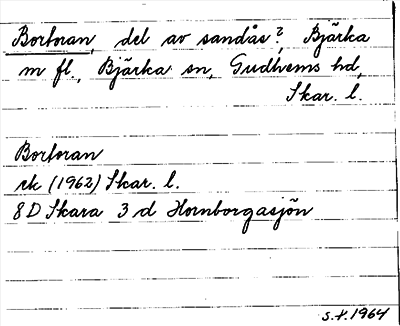 Borforan, del av sandås?, Bjärka
m fl., Bjärka sn, Gudhems hd,
Skar. l.
Borforan
rk (1962) Skar. l.
8D Skara 3 d Hornborgasjön
S.H. 1964